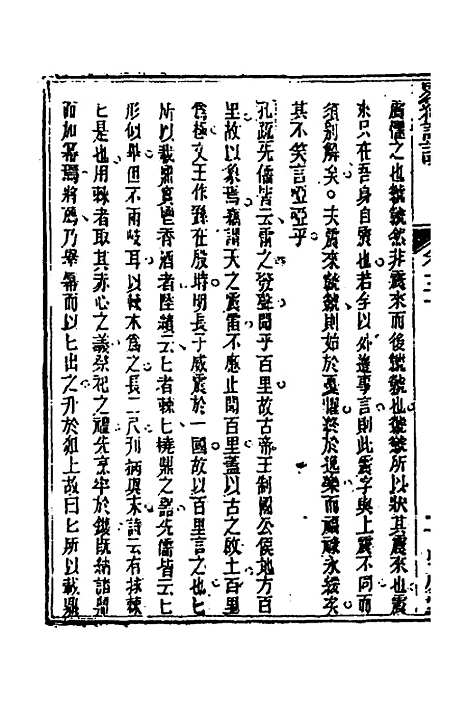 廣懼之也虩虩然非震來而後虩虩也虩虩所以狀其震來也震
來只在吾身自震也若矣以外邊事言則此震字與上震不同而
須别解矣。夫震來虩虩則始於憂懼終於逸樂而福祿永綏矣
其不矣言啞啞乎
孔疏先儒皆云雷之發聲聞乎百里故古帝王制國公侯地方百
里故以象焉竊謂天之震雷不應止聞百里蓋以古之啟土百里
爲極文王作繇在殷時明長子威震於一國故以百里言之也匕
所以載鼎實鬯香酒者陸績云匕者棘匕橈鼎之器先儒皆云匕
形似畢但不兩岐耳以棘木爲之長二尺刋柄與末詩云有捄棘
匕是也用棘者取其赤心之義祭祀之禮先烹牢於鑊旣納諸鼎
而加冪焉將薦乃舉冪而以匕出之升於俎上故曰匕所以載鼎